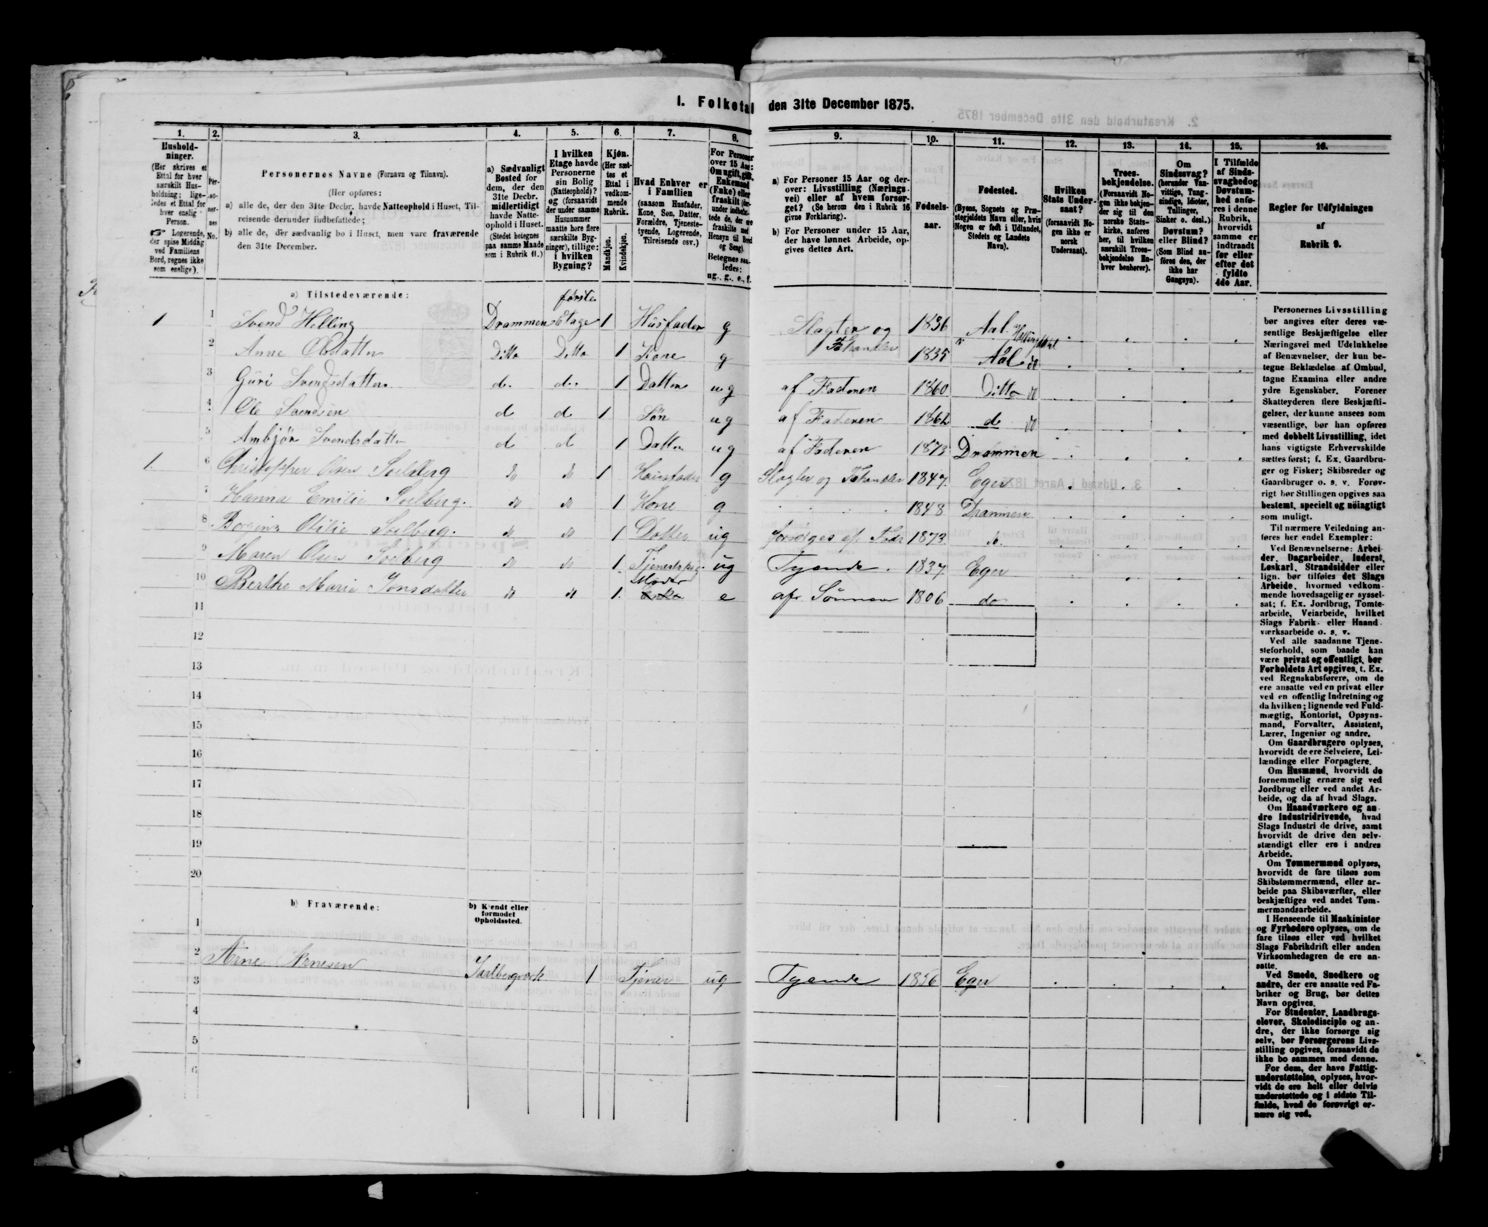 I. Folketal den 31te December 1875.
1.
2.
3.
4.
5.
6.
7.
8.
9.
10.
11.
12.
13.
14.
15.
16.
Husholdninger.
(Her skrives et Ettal for hver særskilt Husholdning; ligeledes et Ettal for hver enslig Person.
☞ Logerende, der spise Middag ved Familiens Bord, regnes ikke som enslige).
Personernes No.
Personernes Navne (Fornavn og Tilnavn).
(Her opføres:
a) alle de, der den 31te Decbr. havde Natteophold i Huset, Tilreisende derunder indbefattede;
b) alle de, der sædvanlig bo i Huset, men vare fraværende den 31te December.
a) Sædvanligt Bosted for dem, der den 31te Decbr. midlertidigt havde Natteophold i Huset.
(Stedet betegnes paa samme Maade som i Rubrik 11.)
I hvilken Etage havde Personerne sin Bolig (Natteophold)? og (forsaavidt der under samme Husnummer maatte høre flere særskilte Bygninger), tillige: i hvilken Bygning?
Kjøn.
(Her sættes et Ettal i vedkommende Rubrik.
Mandkjøn.
Kvindekjøn.
Hvad Enhver er i Familien
(saasom Husfader, Kone, Søn, Datter, Forældre, Tjenestetyende, Logerende, Tilreisende osv.)
a) For Personer 15 Aar og derover: Livsstilling (Næringsvei) eller af hvem forsørget? (Se herom den i Rubrik 16 givne Forklaring).
b) For Personer under 15 Aar, der have lønnet Arbeide, opgives dettes Art.
Fødselsaar.
Fødested.
(Byens, Sognets og Præstegjeldets Navn eller, hvis Nogen er født i Udlandet, Stedets og Landets Navn).
Hvilken Stats Undersaat?
(forsaavidt Nogen ikke er norsk Undersaat).
Troesbekjendelse.
(Forsaavidt Nogen ikke bekjender sig til den norske Statskirke, anføres her, til hvilken særskilt Troesbekjendelse Enhver henhører).
Om Sindssvag? (herunder Vanvittige, Tungsindige, Idioter, Tullinger, Sinker o. desl.)
Døvstum? eller Blind?
(Som Blind anføres den, der ikke har Gangsyn).
I Tilfælde af Sindssvaghed og Døvstumhed anføres i denne Rubrik, hvorvidt samme er indtraadt før eller efter det fyldte 4de Aar.
Regler for Udfyldningen af Rubrik 9.
a) Tilstedeværende:
første
1 1 Svend Helling Drammen Etage 1 Husfader g Slagter og 1836 Aal Hallingdal
2 Anne Olsdatter Ditto Ditto 1 Kone g Fehandler 1835 Aal do
3 Guri Svendsdatter d. d. 1 Datter ug af Faderen 1860 Ditto do
4 Ole Svendsen d d 1 Søn ug af Faderen 1862 d do
5 Ambjør Svendsdatter d d 1 Datter ug af Faderen 1873 Drammen
1 6 Christopher Olsen Solberg do do 1 Huusfader g Slagter og Fehandler 1847 Eger
7 Hanna Emilie Solberg. do do 1 Kone g 1848 Drammen
8 Otilie Solberg. do do 1 Datter ug forsørges af Fader 1873 do.
9 Maren Olsen Solberg do do 1 Tjenestepige ug Tyende 1837 Eger
Moder
10 Berthe Marie Jonsdatter do do 1. e afr Sønnen 1806 do
11
12
13
14
15
16
17
18
19
20
b) Fraværende:
b) Kjendt eller formodet Opholdssted.
1
2 Arne 1 Tjener ug Tyende 1856 Eger
3
4
5
6
Personernes Livsstilling bør angives efter deres væsentlige Beskjæftigelse eller Næringsvei med Udelukkelse af Benævnelser, der kun betegne Beklædelse af Ombud, tagne Examina eller andre ydre Egenskaber. Forener Skatteyderen flere Beskjæftigelser, der kunne ansees som væsentlige, bør han opføres med dobbelt Livsstilling, idet hans vigtigste Erhvervskilde sættes først; f. Ex. Gaardbruger og Fisker; Skibsreder og Gaardbruger o. s. v. Forøvrigt bør Stillingen opgives saa bestemt, specielt og nøiagtigt som muligt.
Til nærmere Veiledning anføres her endel Exempler:
Ved Benævnelserne: Arbeider, Dagarbeider, Inderst, Løskarl, Strandsidder eller lign. bør tilføies det Slags Arbeide, hvormed vedkommende hovedsagelig er sysselsat; f. Ex. Jordbrug, Tomtearbeide, Veiarbeide, hvilket Slags Fabrik- eller Haandværksarbeide o. s. v.
Ved alle saadanne Tjenesteforhold, som baade kan være privat og offentligt, bør Forholdets Art opgives, t. Ex. ved Regnskabsførere, om de ere ansatte ved en privat eller ved en offentlig Indretning og da hvilken; lignende ved Fuldmægtig, Kontorist, Opsynsmand, Forvalter, Assistent, Lærer, Ingeniør og andre.
Om Gaardbrugere oplyses, hvorvidt de ere Selveiere, Leilændinge eller Forpagtere.
Om Husmænd, hvorvidt de fornemmelig ernære sig ved Jordbrug eller ved andet Arbeide, og da af hvad Slags.
Om Haandværkere og andre Industridrivende, hvad Slags Industri de drive, samt hvorvidt de drive den selvstændigt eller ere i andres Arbeide.
Om Tømmermænd oplyses, hvorvidt de fare tilsøs som Skibstømmermænd, eller arbeide paa Skibsværfter, eller beskjæftiges ved andet Tømmermandsarbeide.
I Henseende til Maskinister og Fyrbødere oplyses, om de fare tilsøs eller ved hvilket Slags Fabrikdrift eller anden Virksomhedsgren de ere ansatte.
Ved Smede, Snedkere og andre, der ere ansatte ved Fabriker og Brug, bør dettes Navn opgives.
For Studenter, Landbrugselever, Skoledisciple og andre, der ikke forsørge sig selv, bør Forsørgerens Livsstilling opgives, forsaavidt de ikke bo sammen med denne.
For dem, der have Fattigunderstøttelse, oplyses, hvorvidt de ere helt eller delvis understøttede og i sidste Tilfælde, hvad de forøvrigt ernære sig ved.